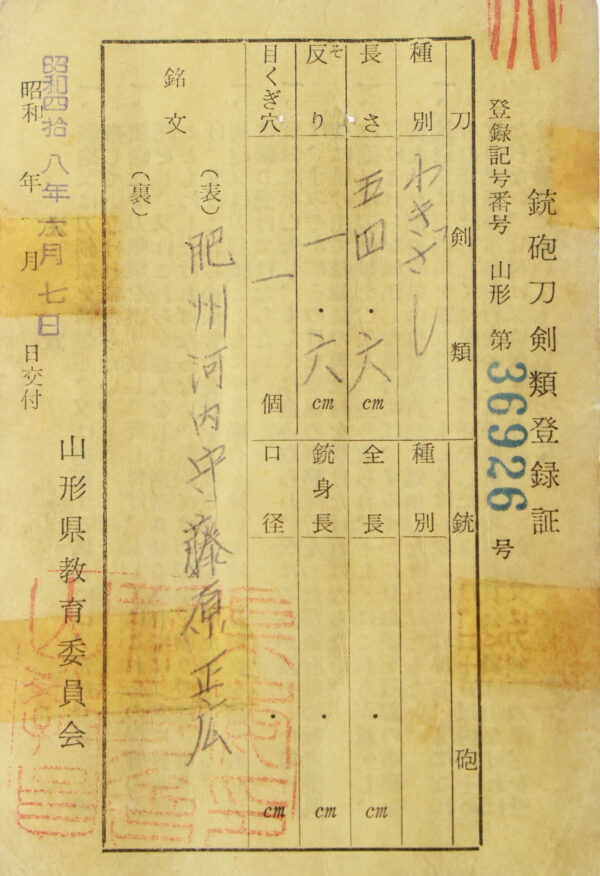 銃砲刀剣類登録証
登録記号番号 山形 第36926号
刀剣類
銃砲
種別 わきざし
種別
長さ 五四・六cm
全長 ・cm
反り 一・六cm
そ
銃身長 ・cm
目くぎ穴 一個
口径 ・cm
銘文
(表) 肥州河内守藤原正広
(裏)
昭和四拾八年六月七日
昭和 年 月 日交付
山形県教育委員会